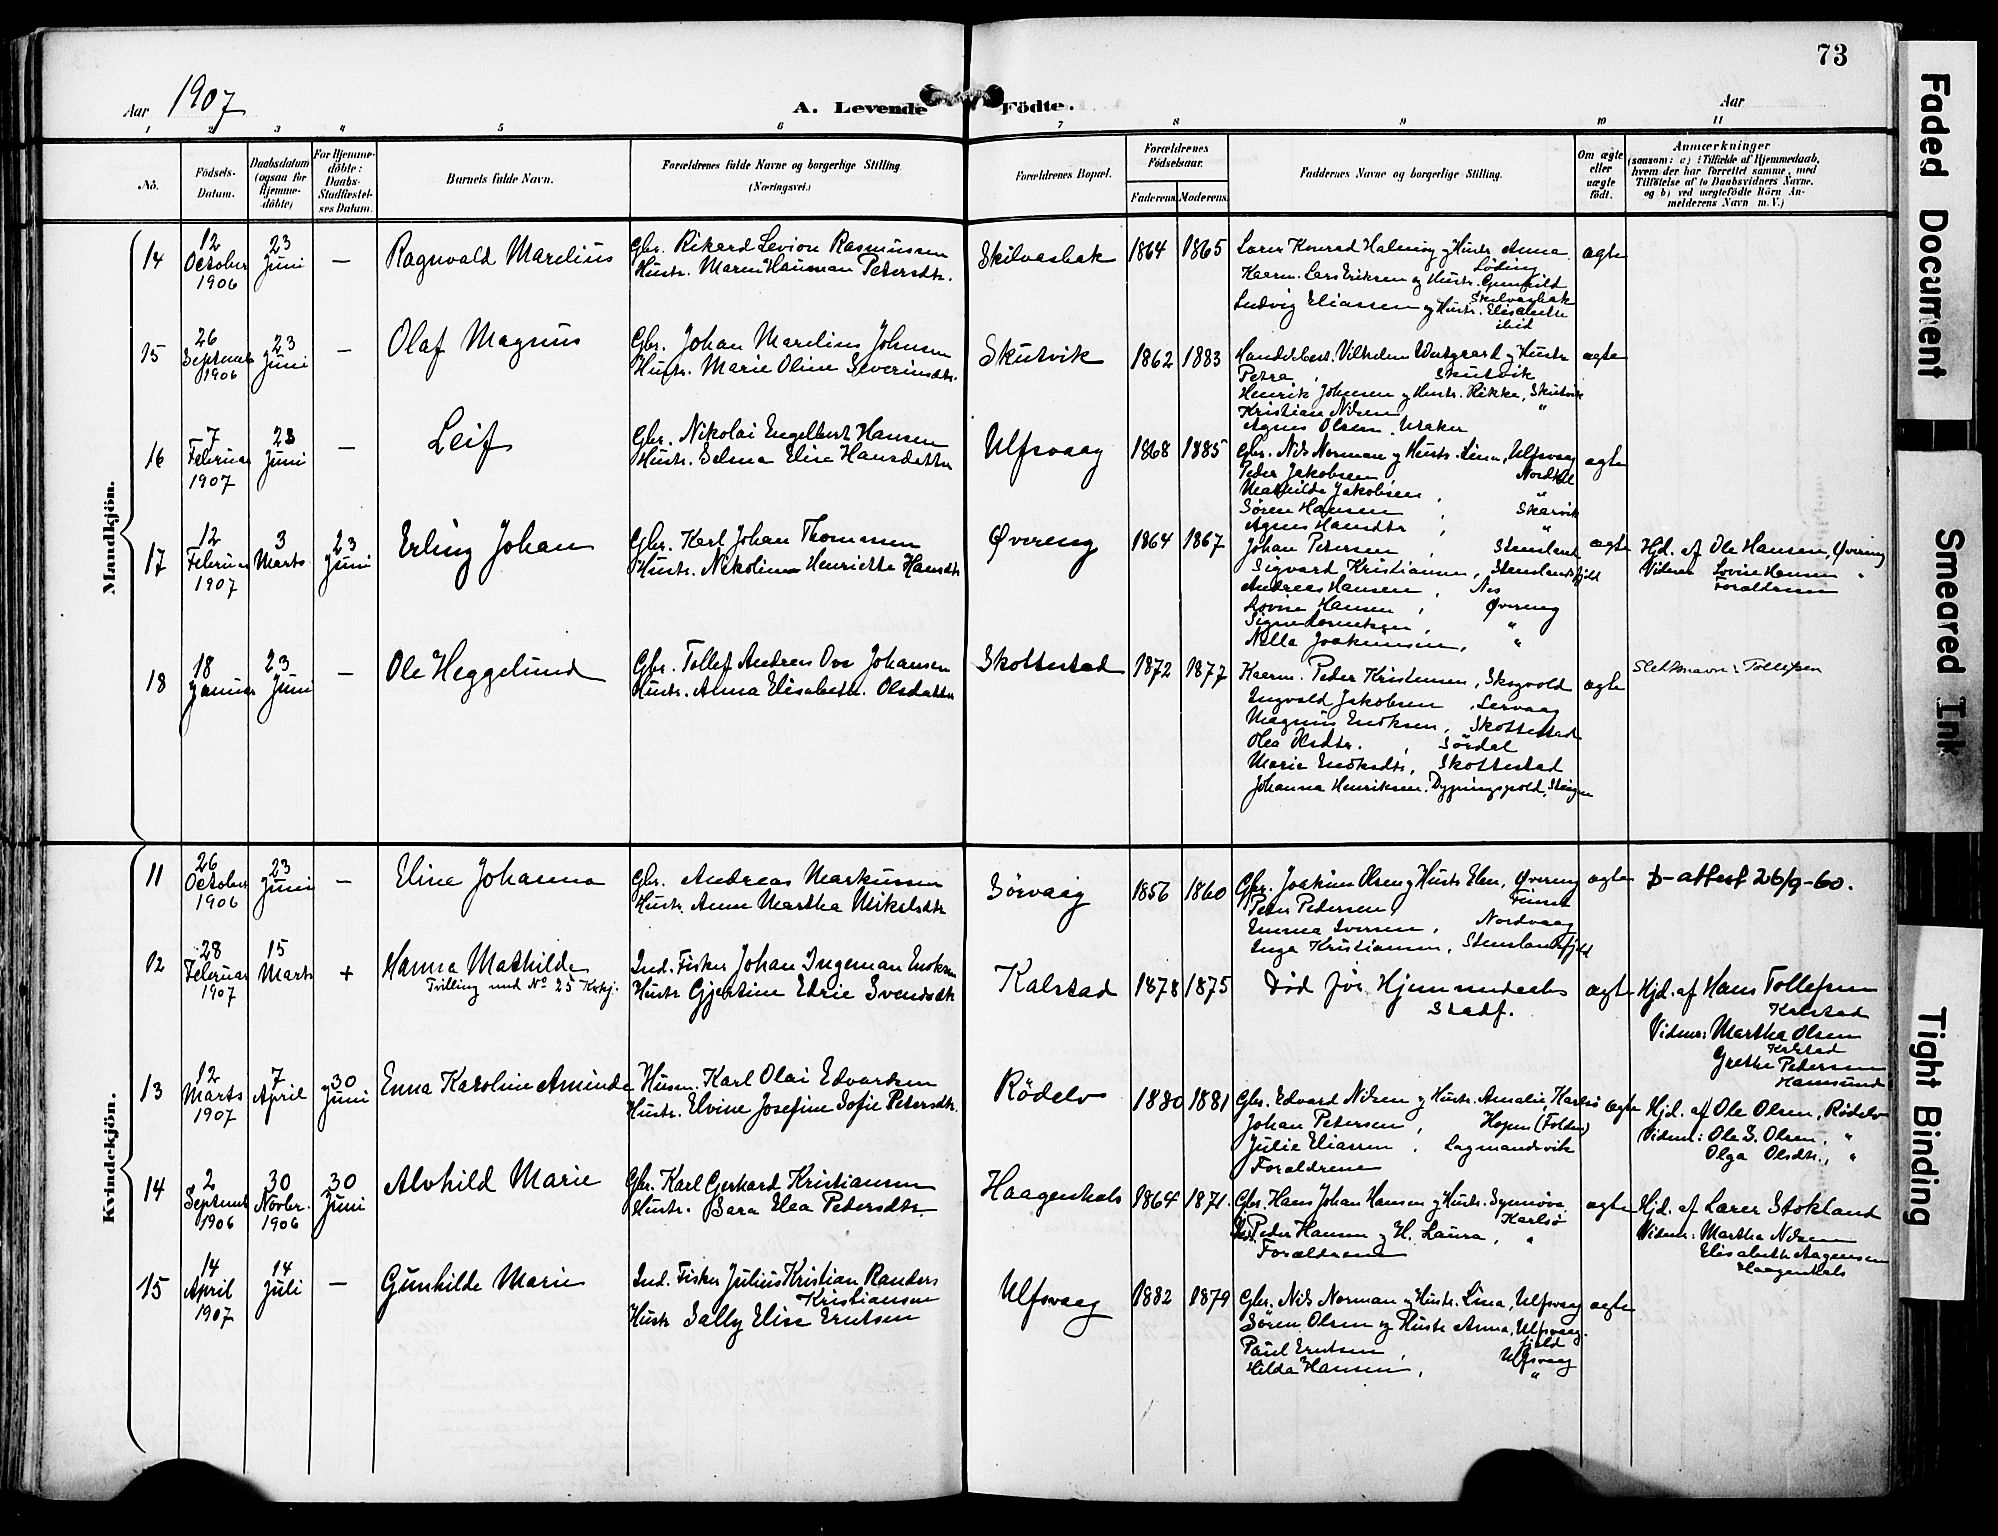 73
Aar 1907
A. Levende Födte.
Aar
1 2 3 4 5 6 7 8 9 10 11
No.
Födsels-
Datum.
Daabsdatum
(ogsaa for
Hjemme-
döbte)
For Hjemme-
döbte:
Daabs-
Stadfæstel-
ses Datum.
Barnets fulde Navn.
Forældrenes fulde Navne og borgerlige Stilling.
(Næringsvei.)
Forældrenes Bopæl.
Forældrenes
Födselsaar.
Faderens
Moderens
Faddernes Navne og borgerlige Stilling.
Om ægte
eller
uægte
födt.
Anmærkninger
(saasom: a) i Tilfælde af Hjemmedaab,
hvem der har forrettet samme, med
Tilföielse af to Daabsvidners Navne,
og b) ved uægtefödte Börn An-
melderens Navn m. V.)
Mandkjön.
14
12
October
1906
23
Juni
—
Ragnvald Marelius
Gbr. Rikard Levion Rasmussen
Hustr. Maren Hausman Petersdtr.
Skilvasbak
1864
1865
Lærer Konrad Halming og Hustr. Anna
Löding
Kaarm. Lars Eriksen og Hustr. Gunhild
Skilvasbak
Ludvig Eliassen og Hustr. Elisabeth
ibid
ægte
15
26
Septemb
1906
23
Juni
—
Olaf Magnus
Gbr. Johan Marelius Johnsen
Hustr. Marie Oline Severinsdtr.
Skutvik
1862
1883
Handelsbest. Vilhelm Vestgaard og Hustr
Petra, Skutvik
Henrik Johnsen og Hustr. Rikka, Skutvik
Kristian Nilsen "
Agnes Olsen, Uraker
ægte
16
7
Februar
1907
23
Juni
—
Leif
Gbr. Nikolai Engelbert Hansen
Hustr. Selma Elise Hansdatter
Ulfsvaag
1868
1885
Gbr. Nils Norman og Hustr. Lina, Ulfsvaag
Peder Jakobsen, Nordkil
Mathilde Jakobsen, "
Sören Hansen, Skarvik
Agnes Hansdtr, "
ægte
17
12
Februar
1907
3
Marts
23
Juni
Erling Johan
Gbr. Karl Johan Thommesen
Hustr. Nikoline Henriette Hansdtr
Øvereng
1864
1867
Johan Petersen, Stensland
Sigvard Kristiansen, Stenslandsfjeld
Andreas Hansen, Nes
Lovise Hansen, Øvereng
Signe "
Nella Joakimsen, "
ægte
Hjd. af Ole Hansen, Øvereng
Vidner Lovise Hansen "
Forældrene
18
18
Januar
23
Juni
—
Ole Heggelund
Gbr. Tollef Andreas Ovr Johansen
Hustr. Anna Elisabeth Olsdatter
Skottestad
1872
1877
Kaarm. Peder Kristensen, Skogvold
Ingvald Jakobsen, Lervaag
Magnus Enoksen, Skottestad
Olea Olsdtr., Sördal
Marie Enoksdtr, Skottestad
Johanna Henriksen, Dypingspold, Steigen
ægte
Slektsnavn: Tollefsen
Kvindekjön.
11
26
October
1906
23
Juni
—
Eline Johanna
Gbr. Andreas Markussen
Hustr. Anne Martha Mikelsdtr
Sörvaag
1856
1860
Gbr. Joakim Olsen og Hustr Elen, Øvereng
Peter Pedersen, Finset
Emma Iversen, Nordvaag
Inga Kristiansen, Stenslandsfjeld
ægte
D-attest 26/9-60.
12
28
Februar
1907
15
Marts
+
Hanna Mathilde
Tvilling med No 25 Kvkj.
Ind. Fisker Johan Ingeman Enoksen
Hustr Gjertine Edrie Svendsdtr
Kalstad
1878
1875
Död för Hjemmedaabs
Stadf.
ægte
Hjd. af Hans Tollefsen
Kalstad
Vidner: Martha Olsen
Kalstad
Grethe Petersen
Hamsund
13
12
Marts
1907
7
April
30
Juni
Enna Karoline Aminda
Husm. Karl Olai Edvardsen
Hustr. Elvine Josefine Sofie Petersdtr.
Rödelv
1880
1881
Gbr. Edvard Nilsen og Hustr. Amalie, Karlsö
Johan Petersen, Hopen (Folden)
Julie Eliassen, Lagmandsvik
Forældrene
ægte
Hjd. af Ole Olsen, Rödelv
Vidner: Ole S. Olsen, "
Olga Olsdtr., "
14
2
Septemb
1906
30
Novbr.
1906
30
Juni
Alvhild Marie
Gbr. Karl Gerhard Kristiansen
Hustr. Bara Elea Petersdtr.
Haagenhals
1864
1871.
Gbr. Hans Johan Hansen og Hustr. Synnöva
Karlsö
Peder Hansen og H. Laura, "
Forældrene
ægte
Hjd. af Lærer Stokland
Vidner: Martha Nilsen
Elisabeth Aagensen
Haagenhals
15
14
April
1907
14
Juli
—
Gunhilde Marie
Ind. Fisker Julius Kristian Randers
Kristiansen
Hustr Sally Elise Erntsen
Ulfsvaag
1882
1879
Gbr. Nils Norman og Hustr. Lina, Ulfsvaag
Sören Olsen og Hustr Anna, Ulfsvaag-
fjeld
Paul Erntsen, Ulfsvaag
Hilda Hansen, "
ægte
Faded Document
Smeared Ink
Tight Binding